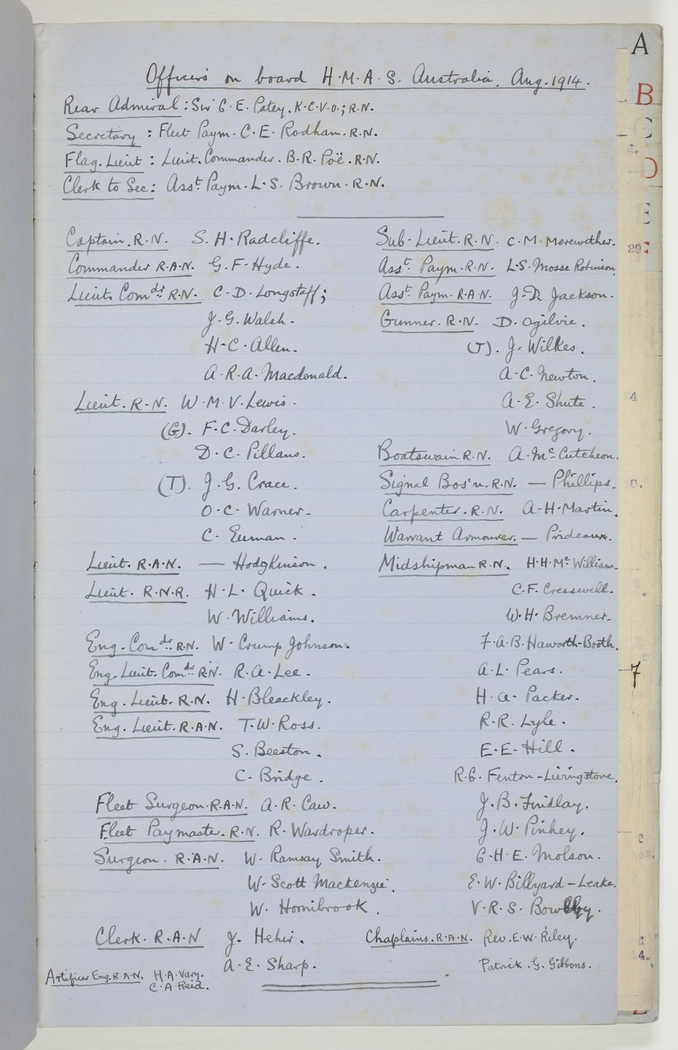 Officers on board H.M.A.S. Australia, Aug. 1914.
Rear Admiral: Sir G. E. Patey. K.C.V.O.; R.N.
Secretary: Fleet Paym. C. E. Rodham. R.N.
Flag. Lieut: Lieut. Commander. B. R. Poë. R.N.
Clerk to Sec: Asst Paym. L. S. Brown. R.N.
Captain. R.N. S. H. Radcliffe.
Commander R.A.N. G. F. Hyde.
Lieut. Comdr R.N. C. D. Longstaff;
J. G. Walsh.
H. C. Allen.
A. R. A. Macdonald.
Lieut. R.N. W. M. V. Lewis.
(G). F. C. Darley.
D. C. Pillans.
(T). J. G. Crace.
O. C. Warner.
C. Euman.
Lieut. R.A.N. — Hodgkinson.
Lieut. R.N.R. H. L. Quick.
W. Williams.
Eng. Comdr R.N. W. Crump Johnson.
Eng. Lieut. Comdr R.N. R. A. Lee.
Eng. Lieut. R.N. H. Bleackley.
Eng. Lieut. R.A.N. T. W. Ross.
S. Beeston.
C. Bridge.
Fleet Surgeon. R.A.N. A. R. Caw.
Fleet Paymaster. R.N. R. Wardroper.
Surgeon. R.A.N. W. Ramsay Smith.
W. Scott Mackenzie.
W. Hornibrook.
Clerk. R.A.N J. Hehir.
A. E. Sharp.
Artificer Eng. R.A.N. H. A. Vary.
C. A Reid.
Sub. Lieut. R.N. C. M. Merewether.
Asst. Paym. R.N. L. S. Mosse Robinson
Asst. Paym. R.A.N. J. D. Jackson.
Gunner. R.N. D. Ogilvie.
(T). J. Wilkes.
A. C. Newton.
A. E. Shute.
W. Gregory.
Boatswain R.N. A. Mc Cutcheon.
Signal Bos'n. R.N. — Phillips.
Carpenter. R.N. A. H. Martin.
Warrant Armourer. — Prideaux.
Midshipman R.N. H. H. Mc William.
C. F. Cresswell.
W. H. Bremner.
F. A. B. Haworth-Booth.
A. L. Pears.
H. A. Packer.
R. R. Lyle.
E. E. Hill.
R. G. Fenton-Livingstone.
J. B. Findlay.
J. W. Pinhey.
G. H. E. Molson.
E. W. Billyard-Leake.
V. R. S. Bowlby.
Chaplains. R.A.N. Rev. E. W. Riley.
Patrick. G. Gibbons.
A
B
C
D
E
29
4
7
4.